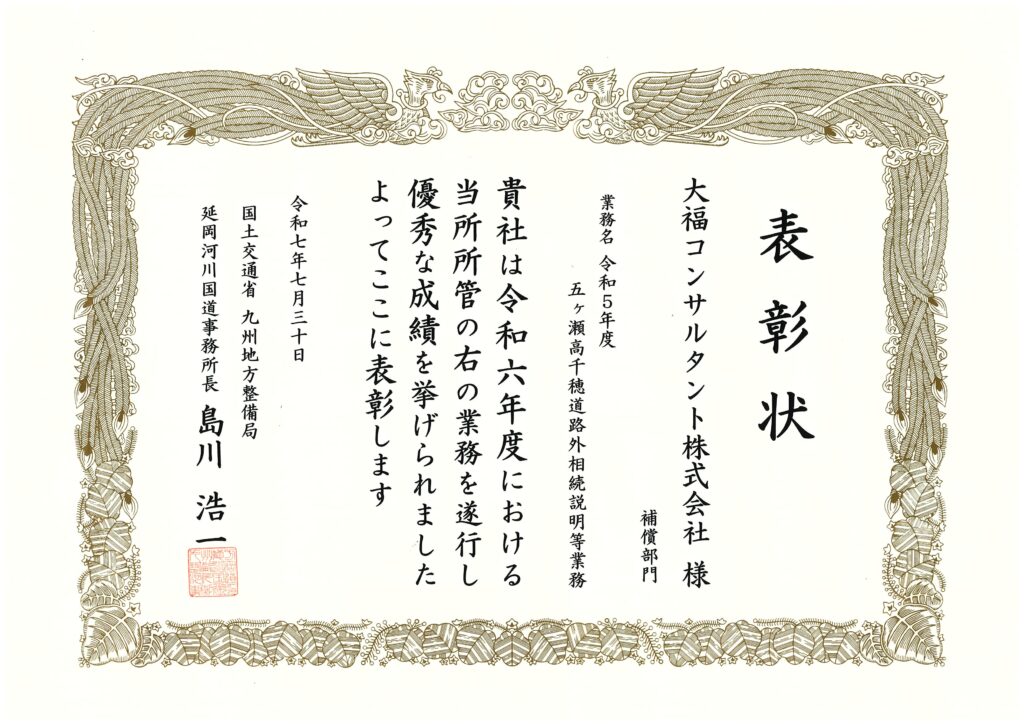 表彰状
大福コンサルタント株式会社 様
補償部門
業務名 令和5年度
五ヶ瀬高千穂道路外相続説明等業務
貴社は令和六年度における
当所所管の右の業務を遂行し
優秀な成績を挙げられました
よってここに表彰します
令和七年七月三十日
国土交通省 九州地方整備局
延岡河川国道事務所長 島川 浩一